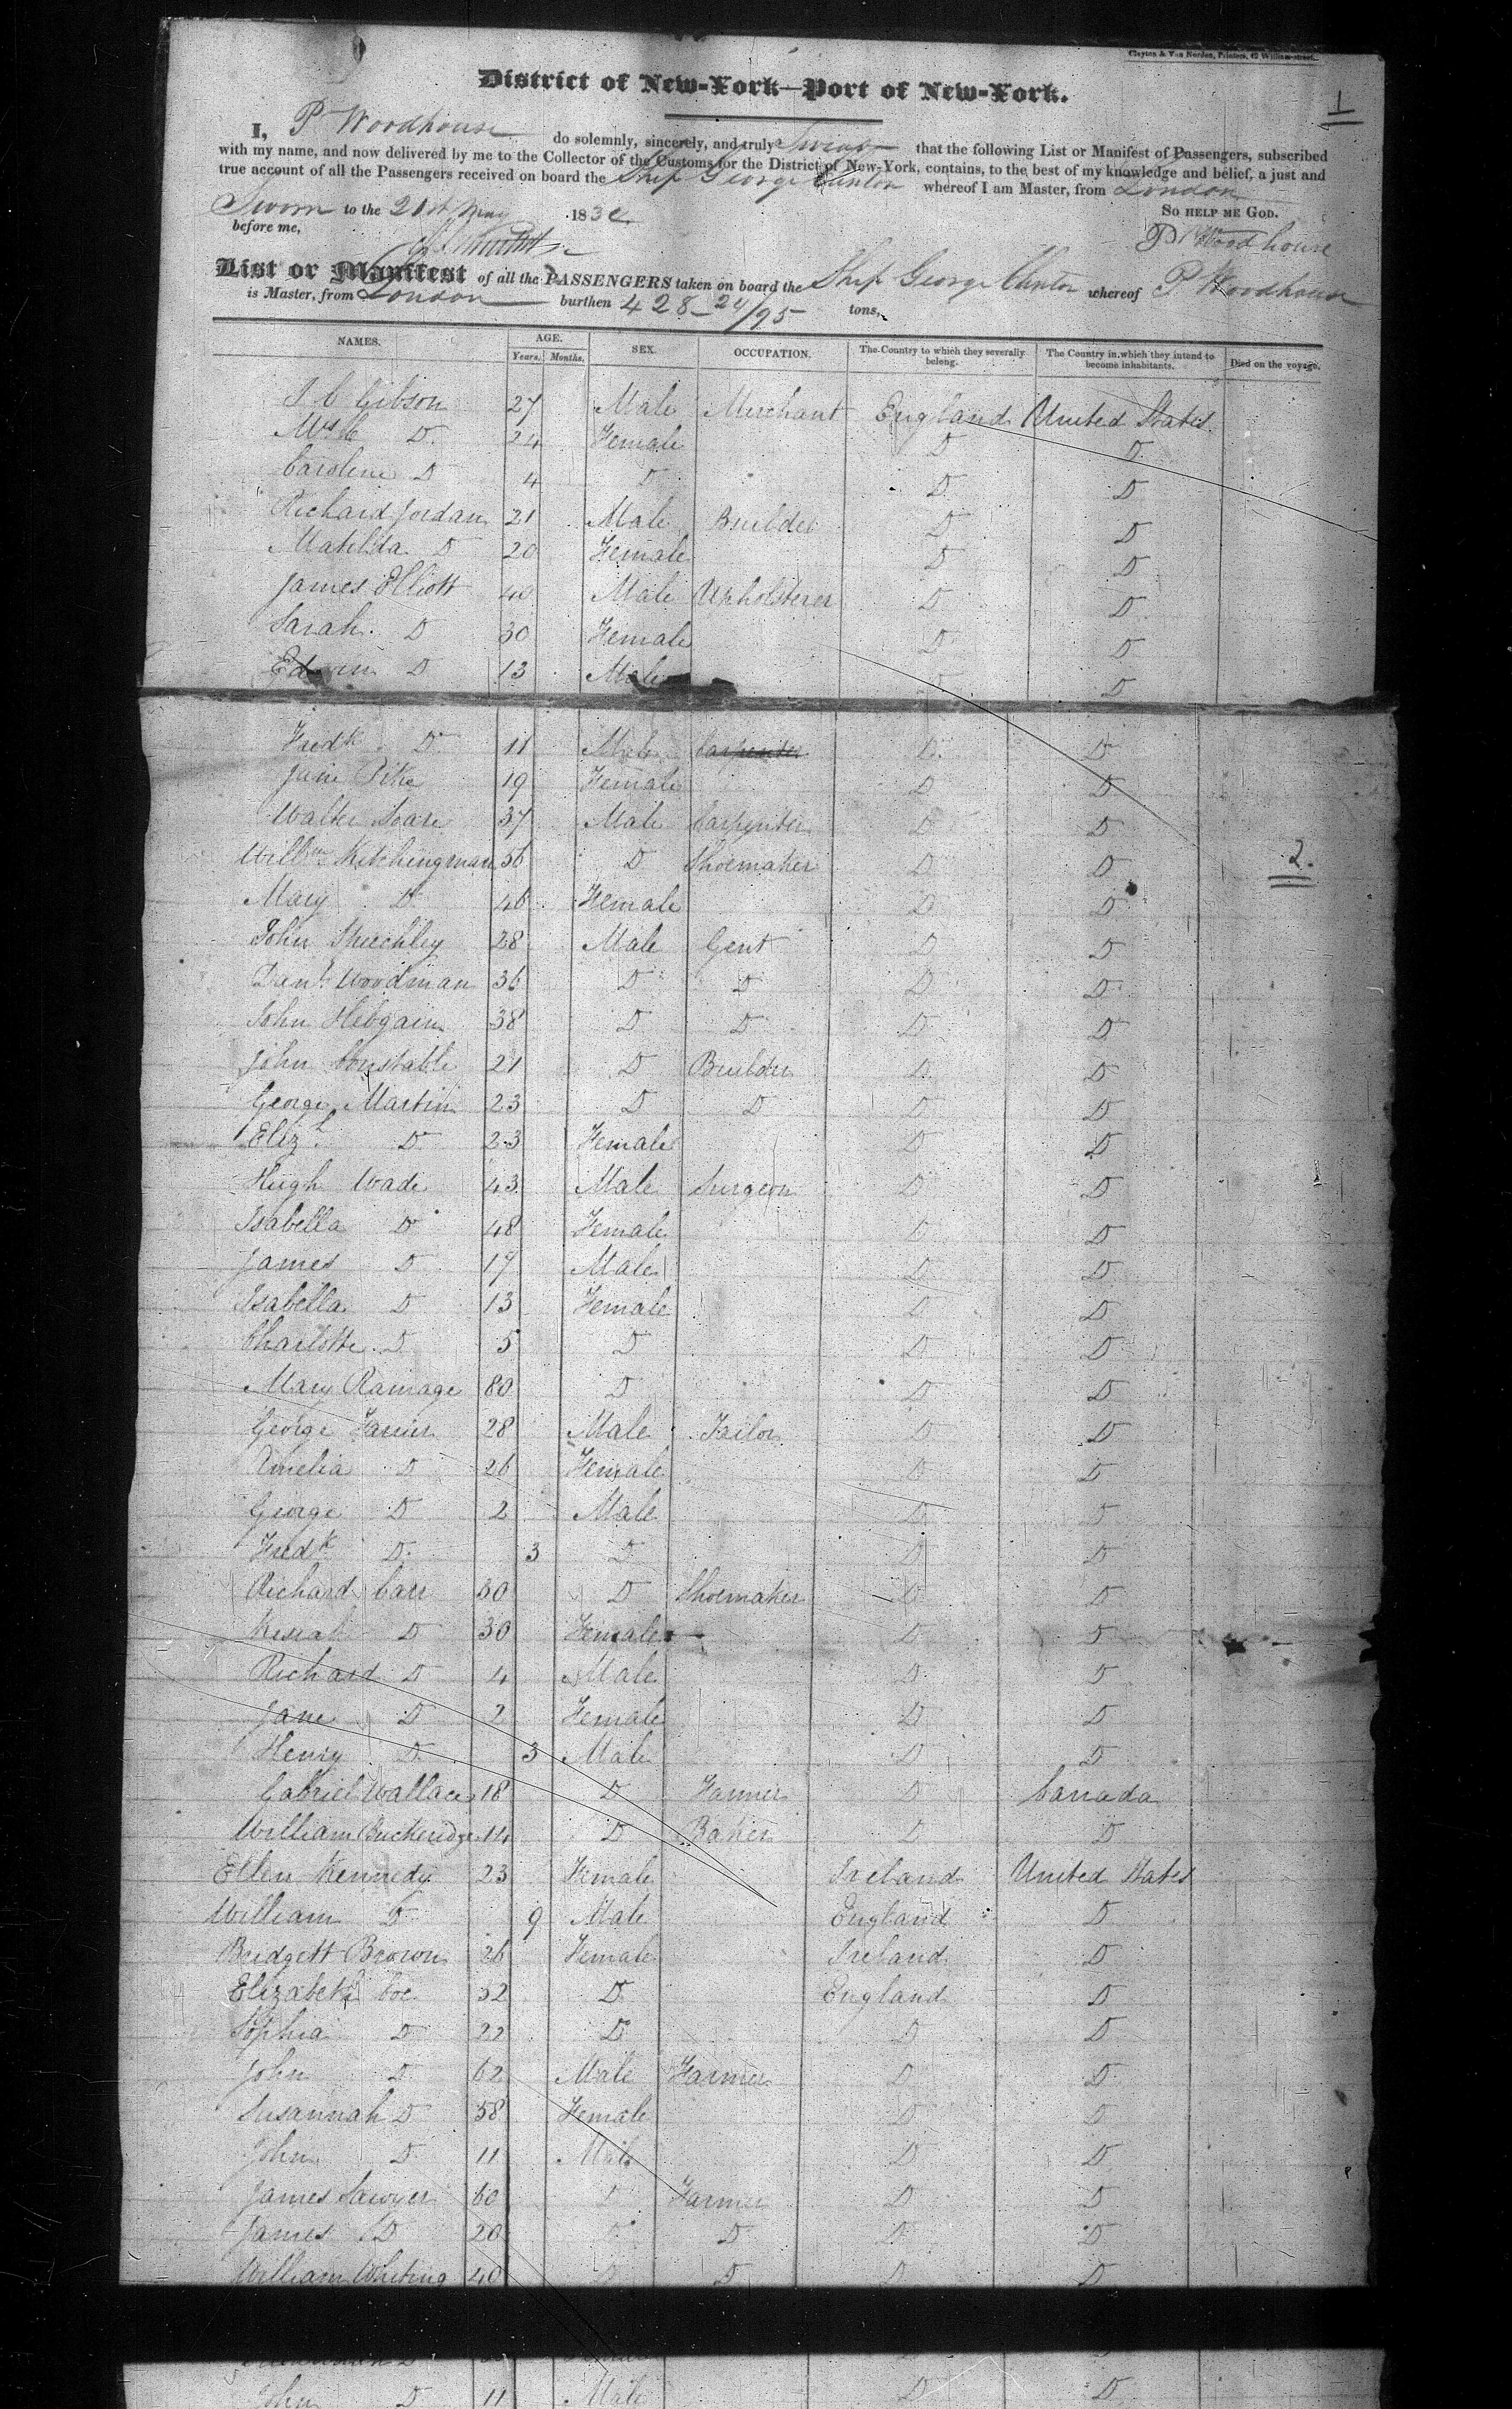 Clayton & Van Norden, Printers, 42 William-street.
District of New-York—Port of New-York.
1
I, P Woodhouse do solemnly, sincerely, and truly Swear that the following List or Manifest of Passengers, subscribed
with my name, and now delivered by me to the Collector of the Customs for the District of New-York, contains, to the best of my knowledge and belief, a just and
true account of all the Passengers received on board the Ship George Clinton whereof I am Master, from London
Sworn to the 21st May 183
So help me God.
before me,
P Woodhouse
List or Manifest of all the PASSENGERS taken on board the Ship George Clinton whereof P Woodhouse
is Master, from London burthen 428-24/95 tons,
NAMES. AGE. Years. Months. SEX. OCCUPATION. The Country to which they severally belong. The Country in which they intend to become inhabitants. Died on the voyage.
Gibson 27 Male Merchant England United States
D 24 Female D D
Caroline D 4 D D D
Richard Jordan 21 Male Builder D D
Matilda D 20 Female D D
James Elliott 40 Male Upholsterer D D
Sarah D 30 Female D D
Edwin D 13 Male D D
Fredk D 11 Male Carpenter D D
Jane Pike 19 Female D D
Walter Seare 37 Male Carpenter D D
Willm Kitchingman 56 D Shoemaker D D
2.
Mary D 46 Female D D
John Speechley 28 Male Gent D D
Danl Woodman 36 D D D D
John Hebgain 38 D D D D
John Constable 21 D Builder D D
George Martin 23 D D D D
Elizh D 23 Female D D
Hugh Wade 43 Male Surgeon D D
Isabella D 48 Female D D
James D 17 Male D D
Isabella D 13 Female D D
Charlotte D 5 D D D
Mary Ramage 80 D D D
George Farrier 28 Male Tailor D D
Amelia D 26 Female D D
George D 2 Male D D
Fredk D 3 D D D
Richard Carr 30 D Shoemaker D D
Kesiah D 30 Female D D
Richard D 4 Male D D
Jane D 2 Female D D
Henry D 3 Male D D
Gabriel Wallace 18 D Farmer D Canada
William Buckeridge 14 D Baker D D
Ellen Kennedy 23 Female Ireland United States
William D 9 Male England D
Bridgett Brown 26 Female Ireland D
Elizabeth Coe 32 D England D
Sophia D 22 D D D
John D 62 Male Farmer D D
Susannah D 58 Female D D
John D 11 Male D D
James Sawyer 60 D Farmer D D
James D 20 D D D D
William Whiting 40 D D D D
John D 11 Male D D